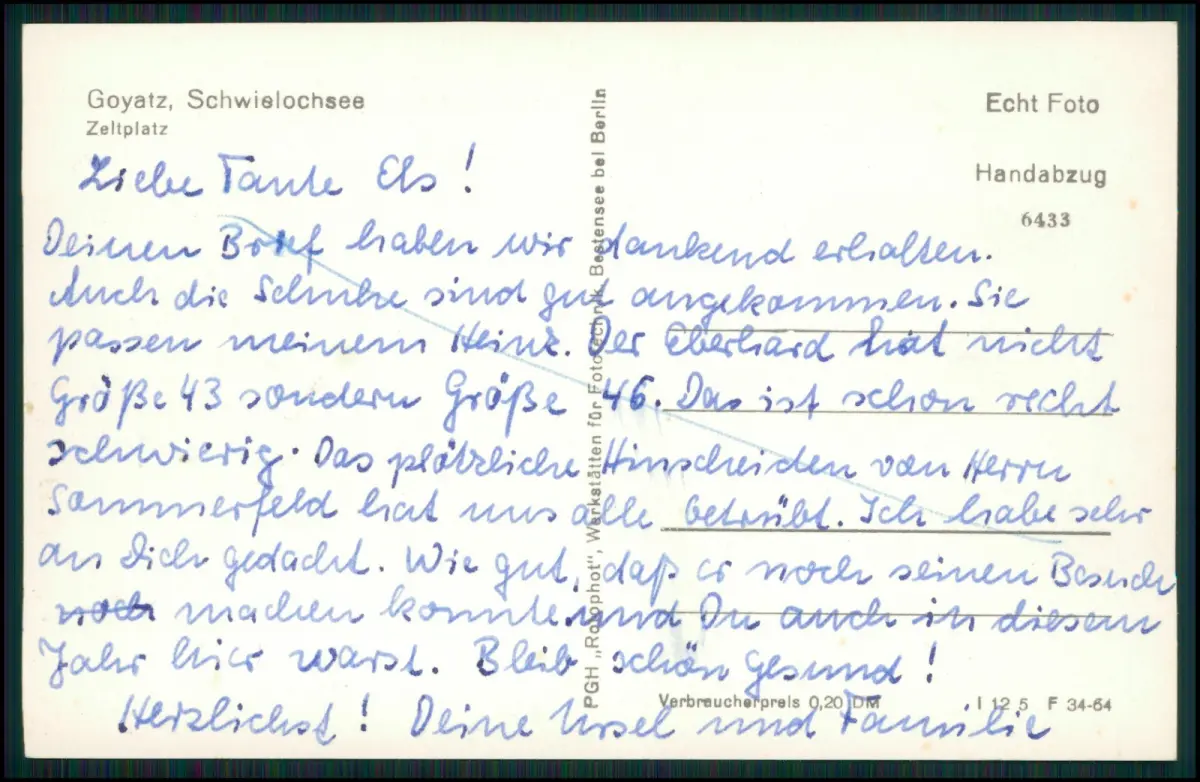 Goyatz, Schwielochsee
Zeltplatz
Echt Foto
Handabzug
6433
Liebe Tante Els!
Deinen Brief haben wir dankend erhalten.
Auch die Schuhe sind gut angekommen. Sie
passen meinem Heinz. Der Eberhard hat nicht
Größe 43 sondern Größe 46. Das ist schon recht
schwierig. Das plötzliche Hinscheiden von Herrn
Sommerfeld hat uns alle betrübt. Ich habe sehr
an Dich gedacht. Wie gut, daß er noch seinen Besuch
noch machen konnte und Du auch in diesem
Jahr hier warst. Bleib schön gesund!
Herzlichst! Deine Ursel und Familie
PGH „Rotophot“, Werkstätten für Fototechnik, Bestensee bei Berlin
Verbraucherpreis 0,20 DM
I 12 5 F 34-64